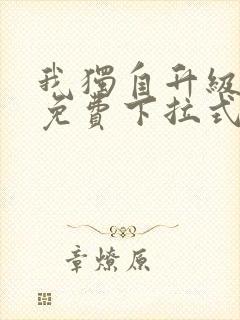 我獨自升級
免費下拉式
章燎原